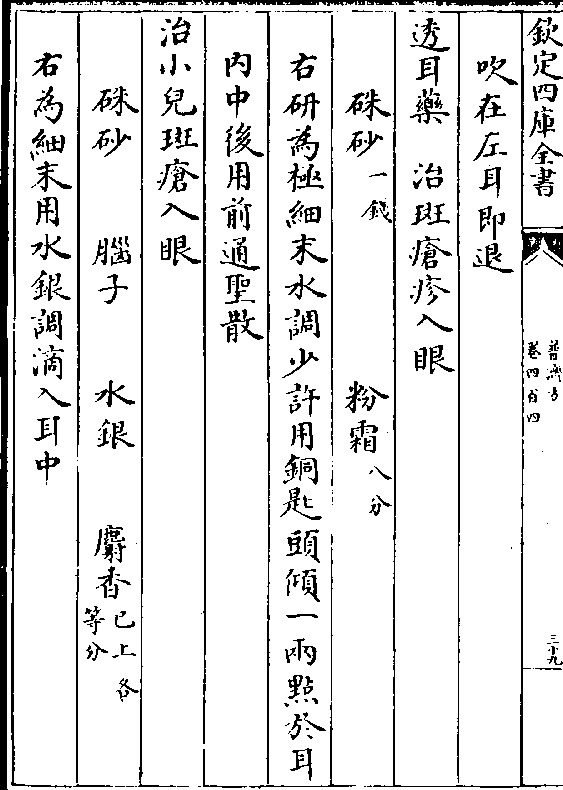 欽定四庫全書
普濟方
卷四百四
三十九
吹在左耳即退
透耳藥 治斑瘡疹入眼
硃砂一錢 粉霜八分
右研為極細末水調少許用銅匙頭傾一兩點於耳
內中後用前通聖散
治小兒斑瘡入眼
硃砂 腦子 水銀 麝香已上各等分
右為細末用水銀調滴入耳中